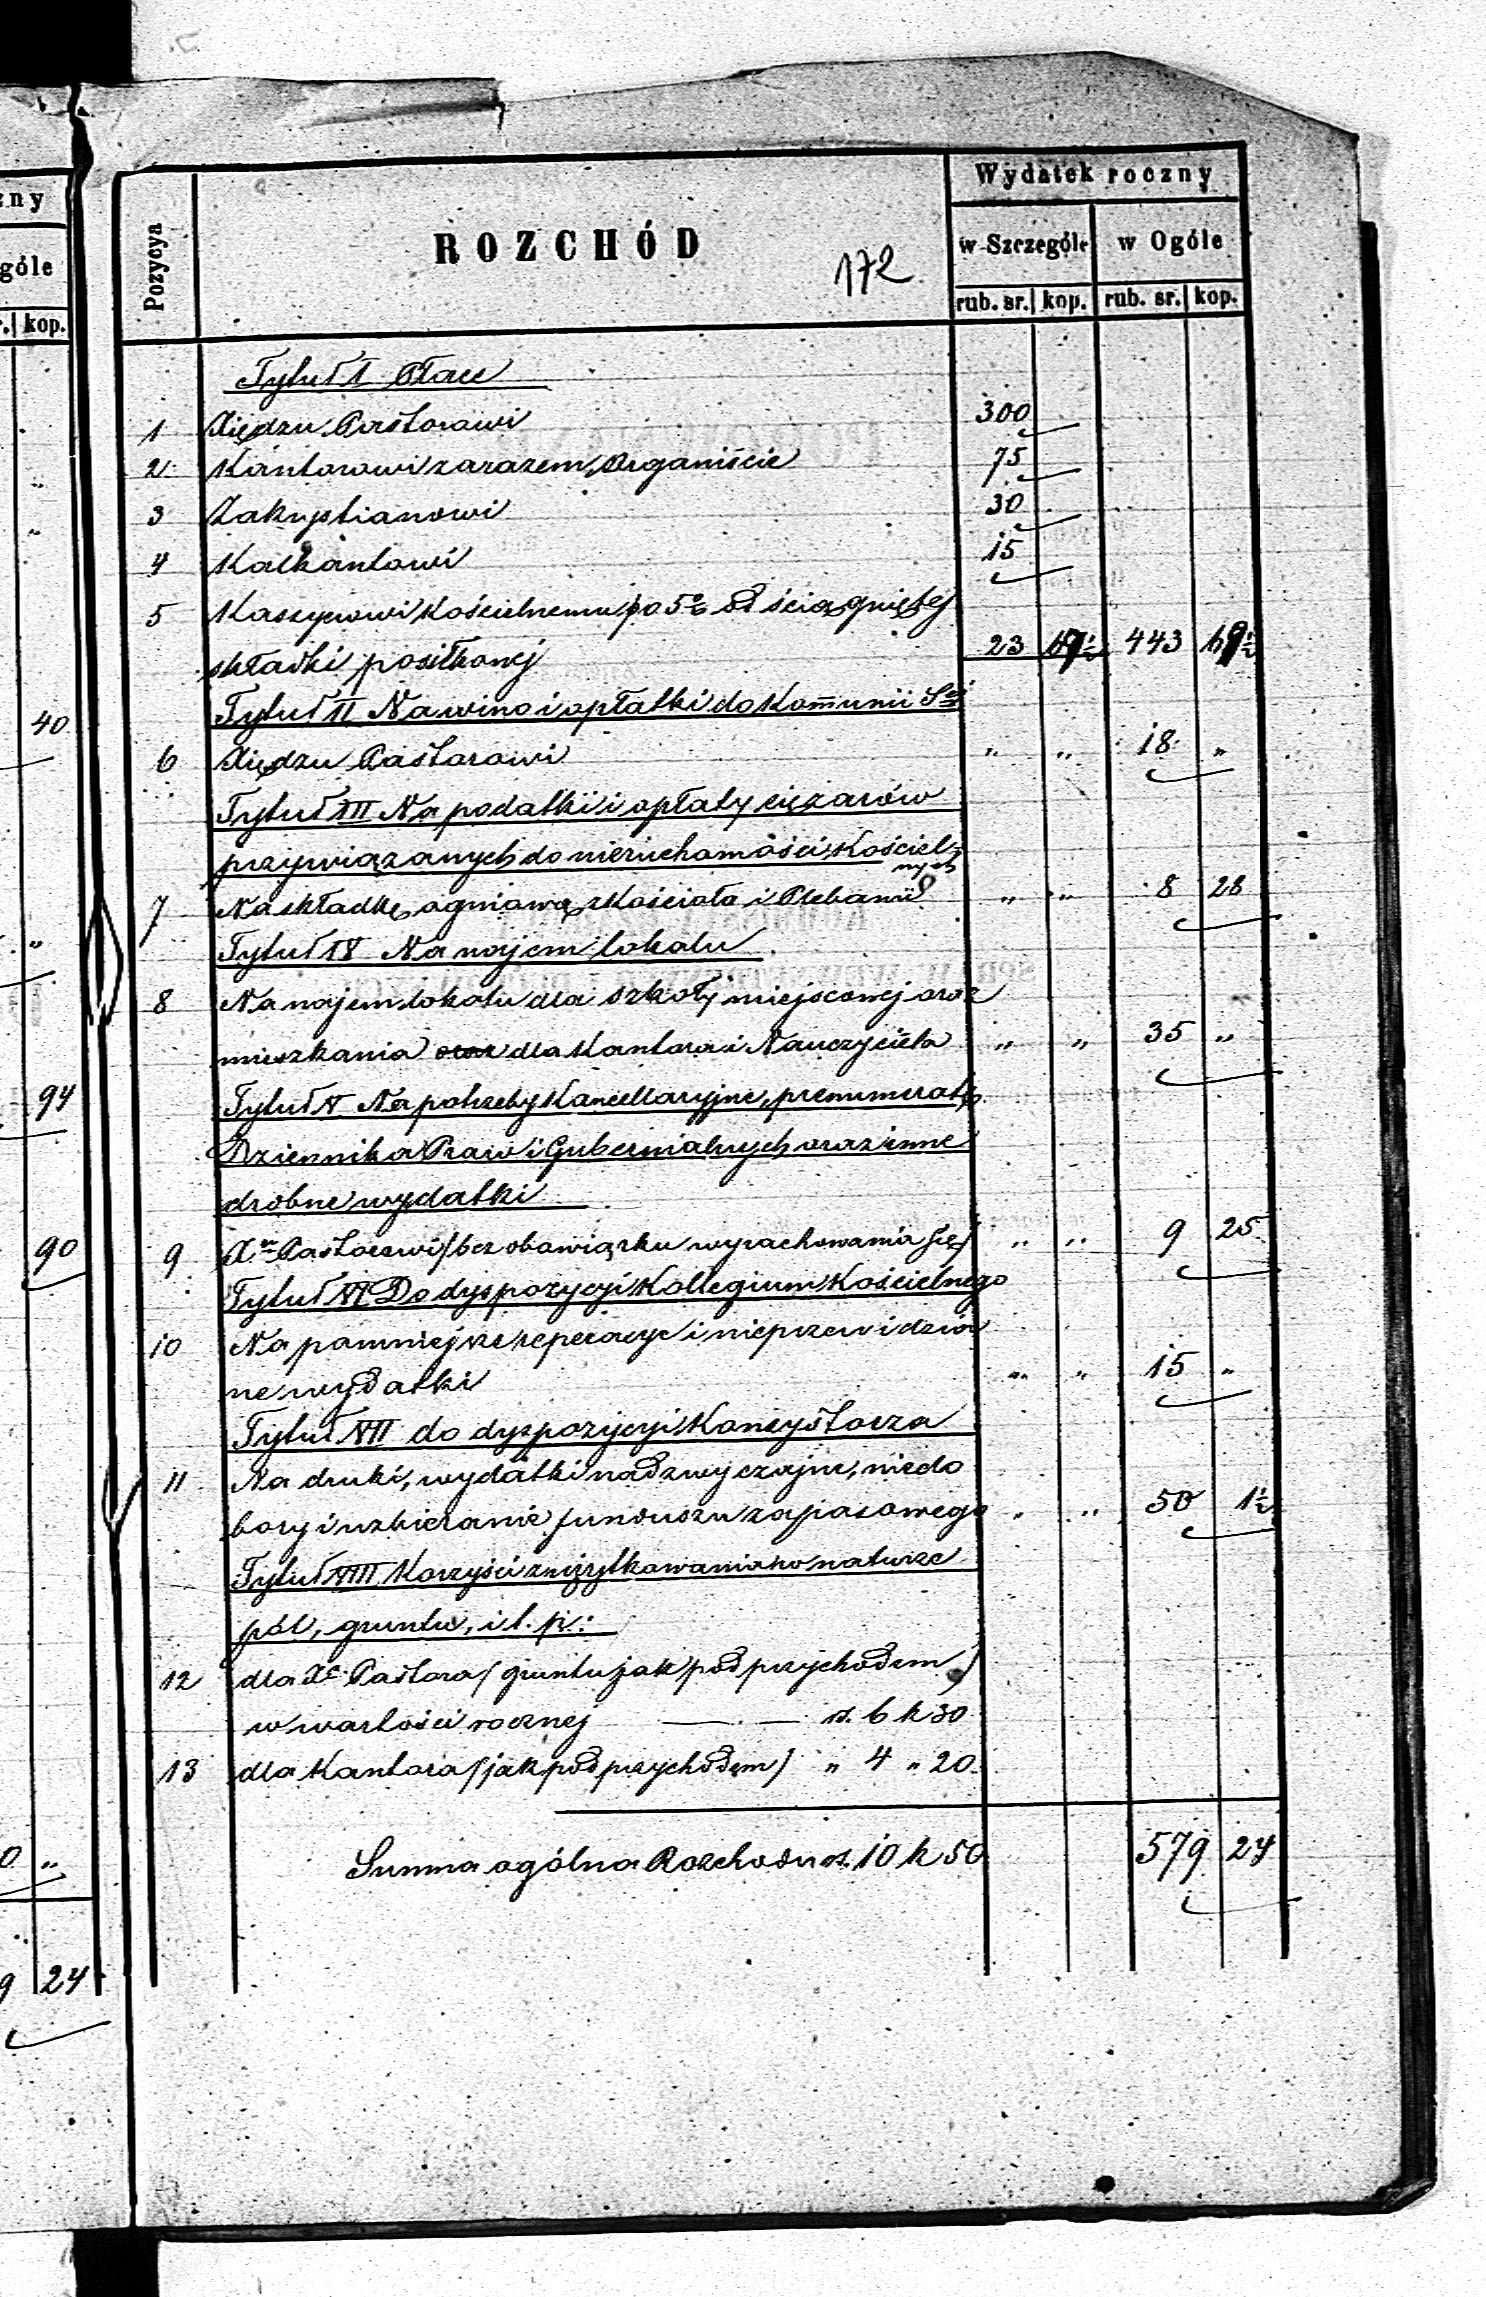 zny
góle
r. kop.
40
94
90
0 „
9 24
Pozycya
ROZCHÓD
172
Wydatek roczny
w Szczególe w Ogóle
rub. sr. kop. rub. sr. kop.
Tytuł I Płace
1 Xiędzu Pastorowi 300
2 Kantorowi zarazem Organiście 75
3 Zakrystianowi 30
4 Kalkantowi 15
5 Kassyerowi Kościelnemu po 5% od ściągniętej
składki posiłkowej 23 443
Tytuł II Na wino i opłatki do Kommunii Sej
6 Xiędzu Pastorowi „ „ 18 „
Tytuł III Na podatki i opłaty ciężarów
przywiązanych do nieruchomości Kościel-
nych
7 Na składkę ogniową z Kościoła i Plebanii „ „ 8 28
Tytuł IV Na najem lokalu
8 Na najem lokalu dla szkoły miejscowej oraz
mieszkania oraz dla Kantora i Nauczyciela „ „ 35 „
Tytuł V Na potrzeby Kancellaryjne, prenumeratę
Dziennika Praw i Gubernialnych oraz inne
drobne wydatki
9 Xu Pastorowi /bez obowiązku wyrachowania się/ „ „ 9 25
Tytuł VI Do dyspozycyi Kollegium Kościelnego
10 Na pomniejsze reperacye i nieprzewidzia
ne wydatki „ „ 15 „
Tytuł VII do dyspozycyi Konsystorza
11 Na druki, wydatki nadzwyczajne, niedo
bory i uzbieranie funduszu zapasowego „ „ 50 1½
Tytuł VIII Korzyści z użytkowania w naturze
pól, gruntu, i t. p:
12 dla Xa Pastora /gruntu jak pod przychodem/
w wartości rocznej — . — rs. 6 k 30
13 dla Kantora /jak pod przychodem/ „ 4 „ 20
Summa ogólna Rozchodu rs. 10 k 50 579 24